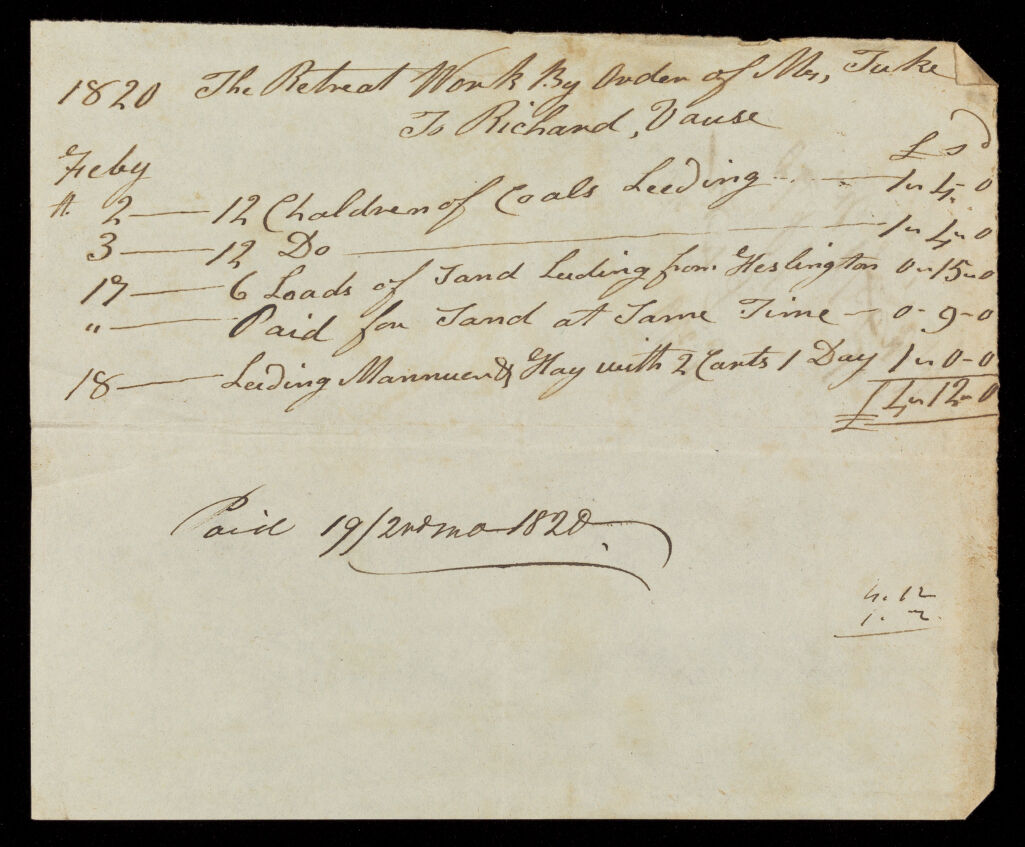 1820 The Retreat Work By Order of Mr, Tuke
To Richard, Vause
£ s d
Feby
2 — 12 Chaldren of Coals Leeding — 1 " 4 " 0
3 — 12 Do — 1 " 4 " 0
17 — 6 Loads of Sand Leeding from Heslington 0 " 15 " 0
" — Paid for Sand at Same Time — 0 - 9 - 0
18 — Leeding Mannuer & Hay with 2 Carts 1 Day 1 " 0 - 0
£ 4 " 12 " 0
Paid 19/2nd mo 1820
4. 12